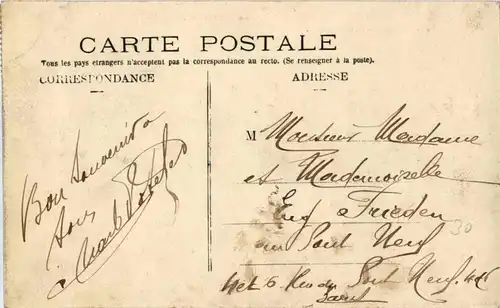 CARTE POSTALE
Tous les pays étrangers n'acceptent pas la correspondance au recto. (Se renseigner à la poste).
CORRESPONDANCE
ADRESSE
Bon Souvenir à
tous
M Monsieur Madame
et Mademoiselle
Eug Frieden
au Pont Neuf
4 et 6 Rue du Pont Neuf 4 et 6
30